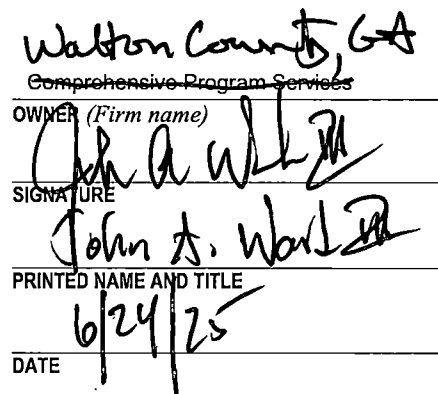 Walton County, GA
Comprehensive Program Services
OWNER (Firm name)
SIGNATURE
John A. Ward III
PRINTED NAME AND TITLE
6/24/25
DATE